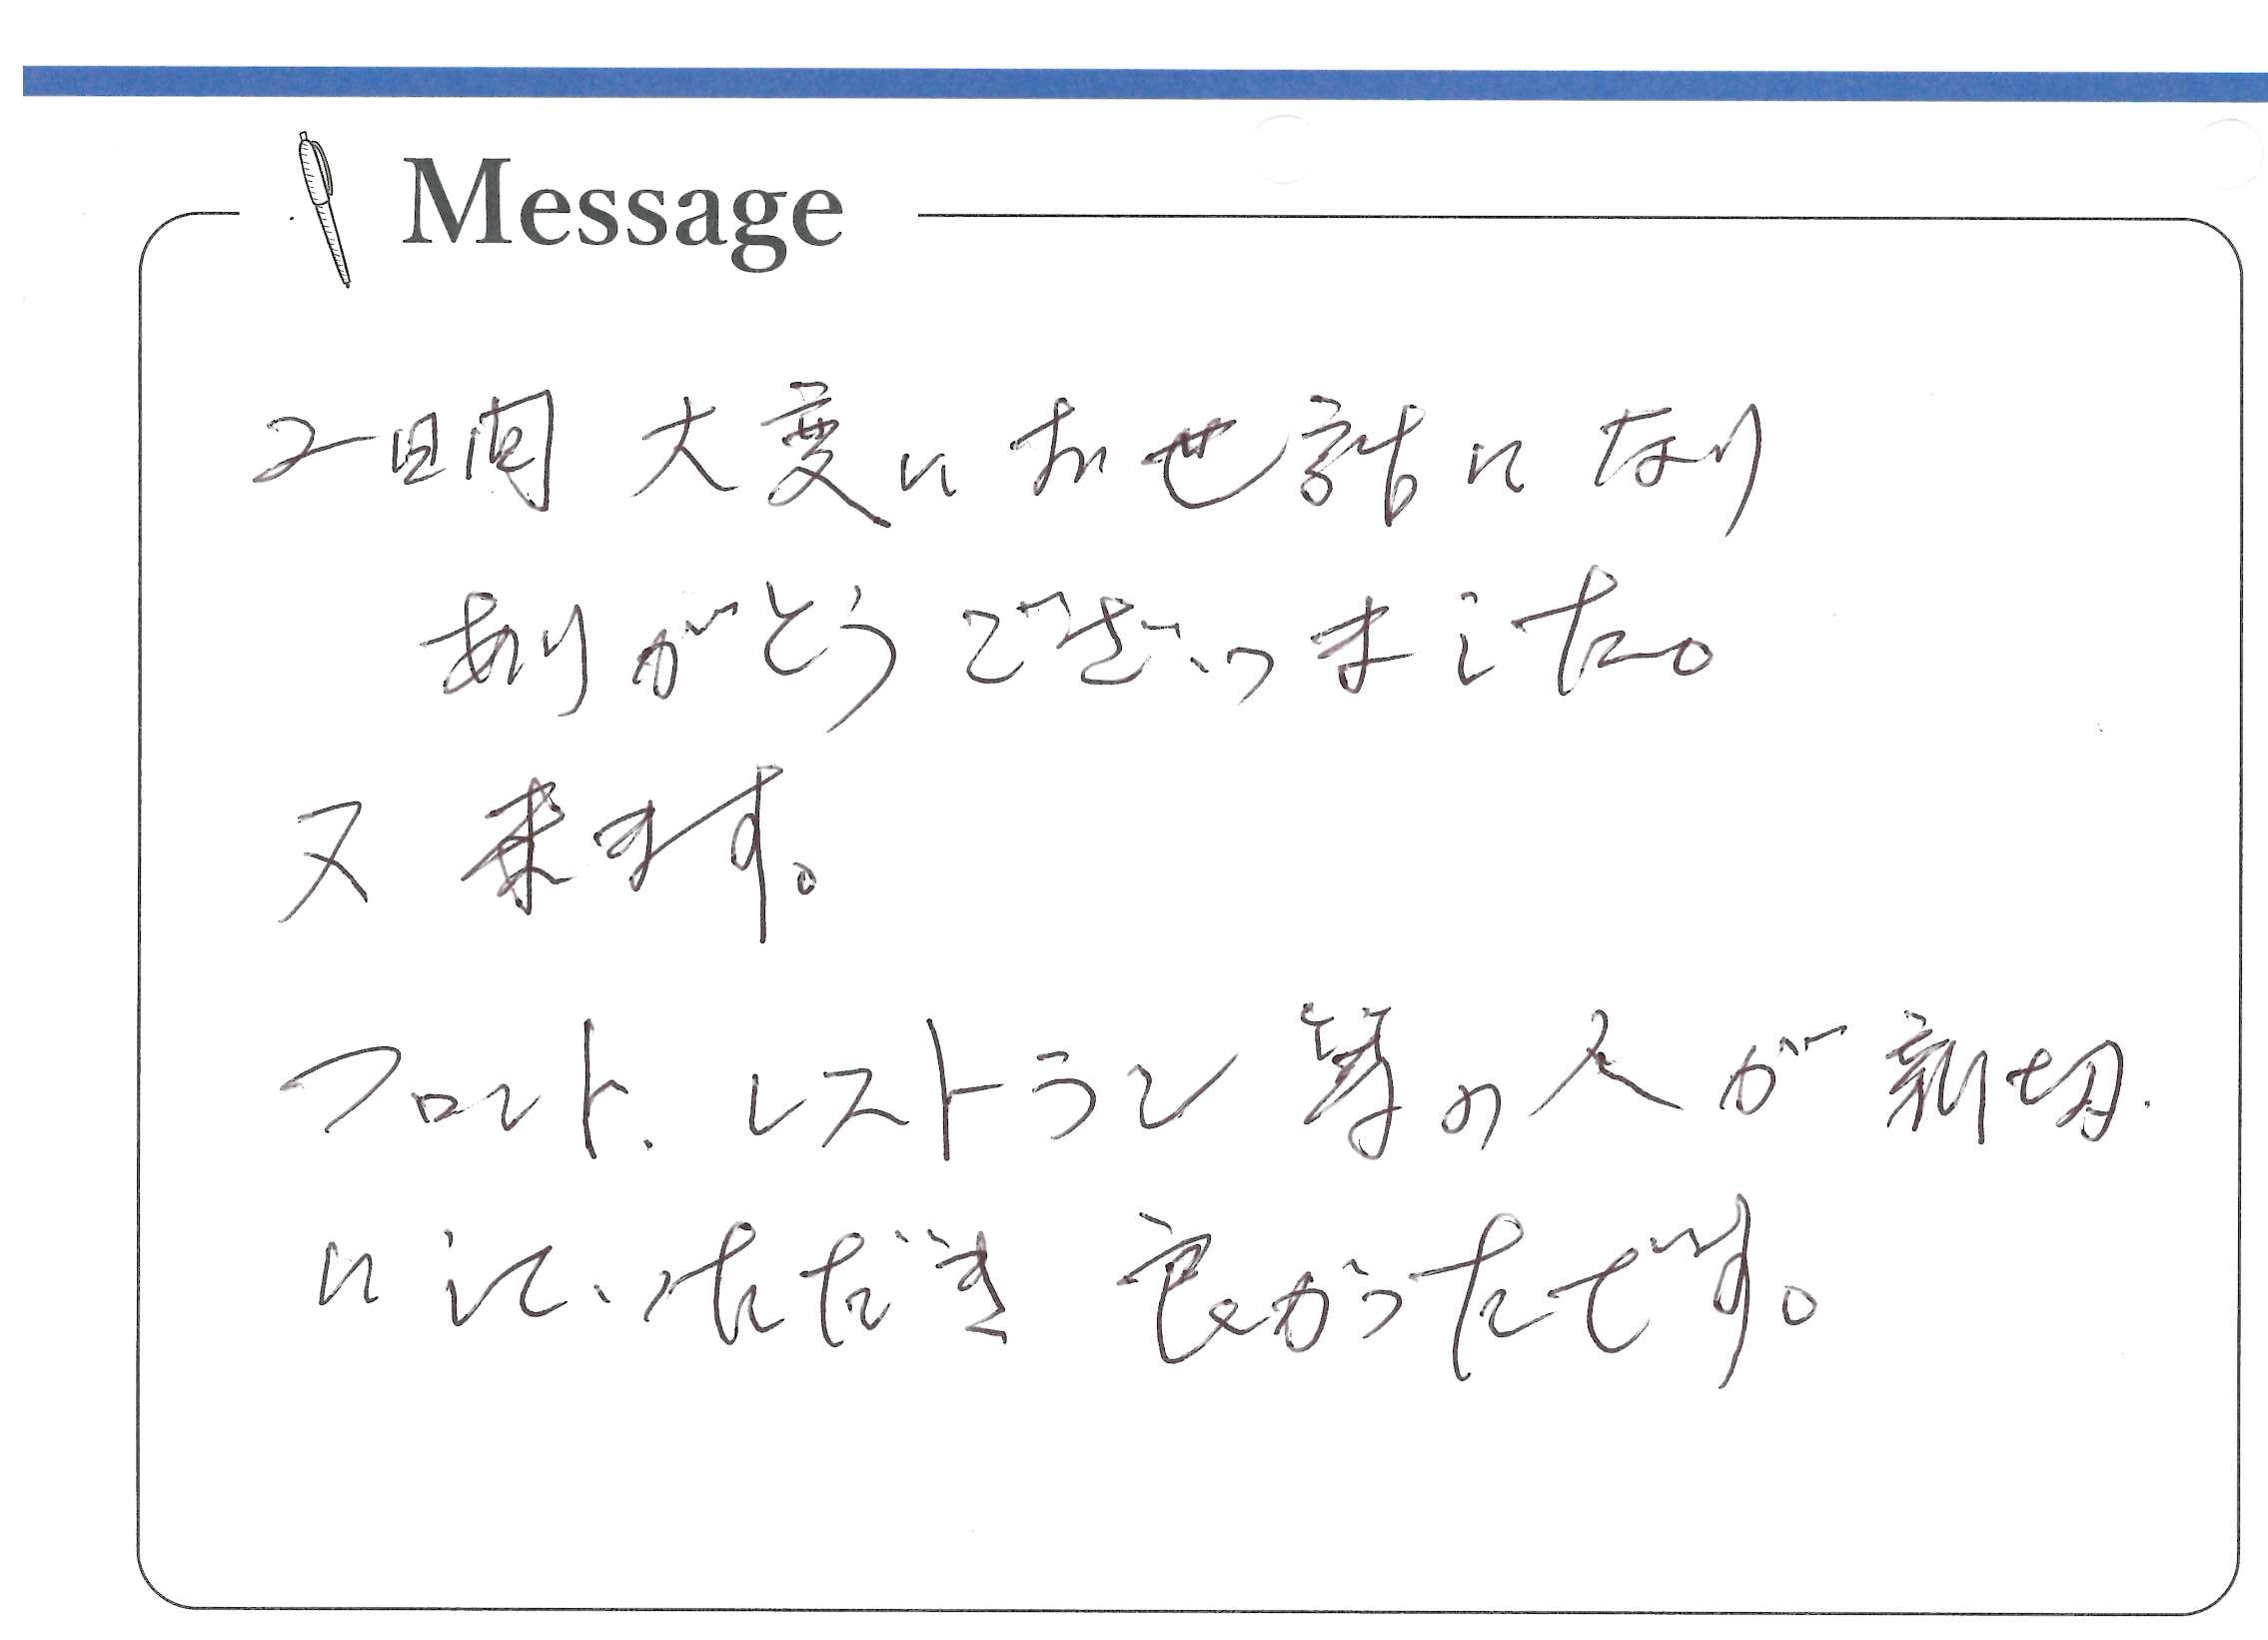 Message
2日間 大変にお世話になり
ありがとうございました。
又 来ます。
フロント、レストラン等の人が親切
にしていただき 良かったです。